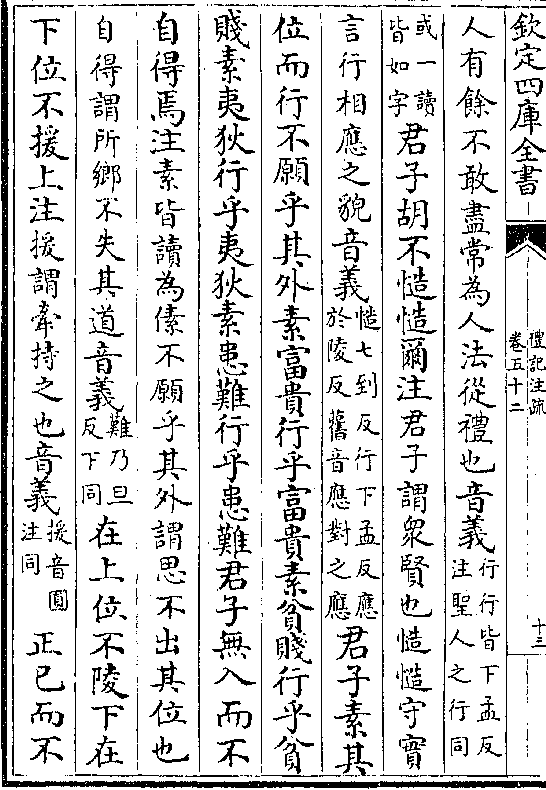 欽定四庫全書
禮記注疏
卷五十二
十三
人有餘不敢盡常為人法從禮也音義行行皆下孟反
注聖人之行同
或一讀
皆如字君子胡不慥慥爾注君子謂衆賢也慥慥守實
言行相應之貌音義慥七到反行下孟反應
於陵反舊音應對之應君子素其
位而行不願乎其外素富貴行乎富貴素貧賤行乎貧
賤素夷狄行乎夷狄素患難行乎患難君子無入而不
自得焉注素皆讀為傃不願乎其外謂思不出其位也
自得謂所鄉不失其道音義難乃旦
反下同在上位不陵下在
下位不援上注援謂牽持之也音義援音圓
注同正已而不